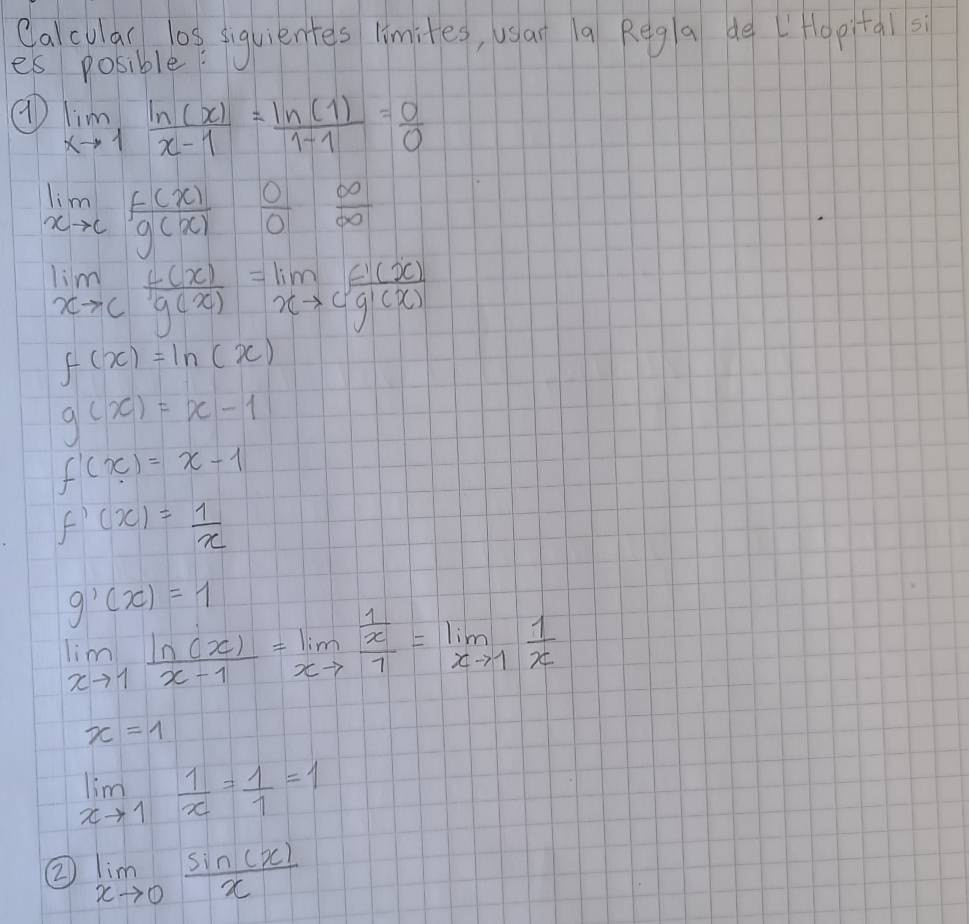 Calcular los siguientes límites, usar la Regla de L'Hopital si
es posible:
① lim x→1 ln(x)/(x-1) = ln(1)/(1-1) = 0/0
lim x→c f(x)/g(x) 0/0 ∞/∞
lim x→c f(x)/g(x) = lim x→c f'(x)/g'(x)
f(x) = ln(x)
g(x) = x-1
f'(x) = x-1
f'(x) = 1/x
g'(x) = 1
lim x→1 ln(x)/(x-1) = lim x→ (1/x)/1 = lim x→1 1/x
x = 1
lim x→1 1/x = 1/1 = 1
② lim x→0 sin(x)/x